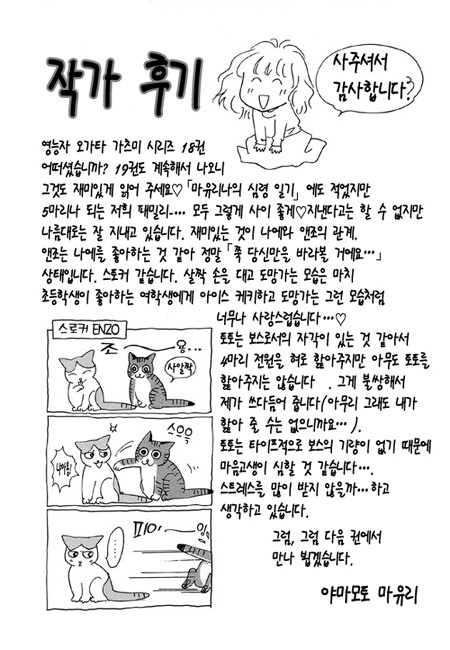 작가 후기
사주셔서
감사합니다?
영능자 오가타 가즈미 시리즈 18권
어떠셨습니까? 19권도 계속해서 나오니
그것도 재미있게 읽어 주세요♡「마유리나의 심령 일기」에도 적었지만
5마리나 되는 저희 패밀리-… 모두 그렇게 사이 좋게♡지낸다고는 할 수 없지만
나름대로는 잘 지내고 있습니다. 재미있는 것이 나에와 앤조의 관계.
앤조는 나에를 좋아하는 것 같아 정말「쭉 당신만을 바라볼 거예요…」
상태입니다. 스토커 같습니다. 살짝 손을 대고 도망가는 모습은 마치
초등학생이 좋아하는 여학생에게 아이스 케키하고 도망가는 그런 모습처럼
너무나 사랑스럽습니다…♡
토토는 보스로서의 자각이 있는 것 같아서
4마리 전원을 혀로 핥아주지만 아무도 토토를
핥아주지는 않습니다. 그게 불쌍해서
제가 쓰다듬어 줍니다(아무리 그래도 내가
핥아 줄 수는 없으니까요…).
토토는 타이프적으로 보스의 기량이 없기 때문에
마음고생이 심할 것 같습니다….
스트레스를 많이 받지 않을까…하고
생각하고 있습니다.
그럼, 그럼 다음 권에서
만나 뵙겠습니다.
야마모토 마유리
스토커 ENZO
조~용…
사알짝
스으윽
……